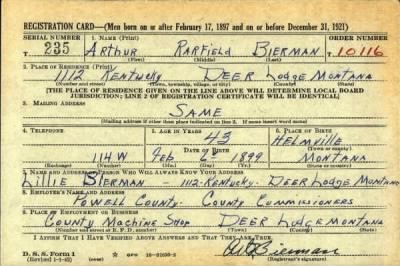 REGISTRATION CARD—(Men born on or after February 17, 1897 and on or before December 31, 1921)
SERIAL NUMBER 1. NAME (Print) ORDER NUMBER
T 235 Arthur Parfield Bierman T 10,116
(First) (Middle) (Last)
2. PLACE OF RESIDENCE (Print)
1112 Kentucky Deer Lodge Montana
(Number and street) (Town, township, village, or city) (County) (State)
[THE PLACE OF RESIDENCE GIVEN ON THE LINE ABOVE WILL DETERMINE LOCAL BOARD
JURISDICTION; LINE 2 OF REGISTRATION CERTIFICATE WILL BE IDENTICAL]
3. MAILING ADDRESS
SAME
[Mailing address if other than place indicated on line 2. If same insert word same]
4. TELEPHONE 5. AGE IN YEARS 6. PLACE OF BIRTH
43 Helmville
DATE OF BIRTH (Town or county)
114 W Feb 1899 Montana
(Exchange) (Number) (Mo.) (Day) (Yr.) (State or country)
7. NAME AND ADDRESS OF PERSON WHO WILL ALWAYS KNOW YOUR ADDRESS
Lillie Bierman - 1112-Kentucky- Deer Lodge Montana
8. EMPLOYER'S NAME AND ADDRESS
Powell County- County Commissioners
9. PLACE OF EMPLOYMENT OR BUSINESS
County Machine Shop Deer Lodge Montana
(Number and street or R. F. D. number) (Town) (County) (State)
I AFFIRM THAT I HAVE VERIFIED ABOVE ANSWERS AND THAT THEY ARE TRUE.
D. S. S. Form 1
Bierman
(Registrant's signature)